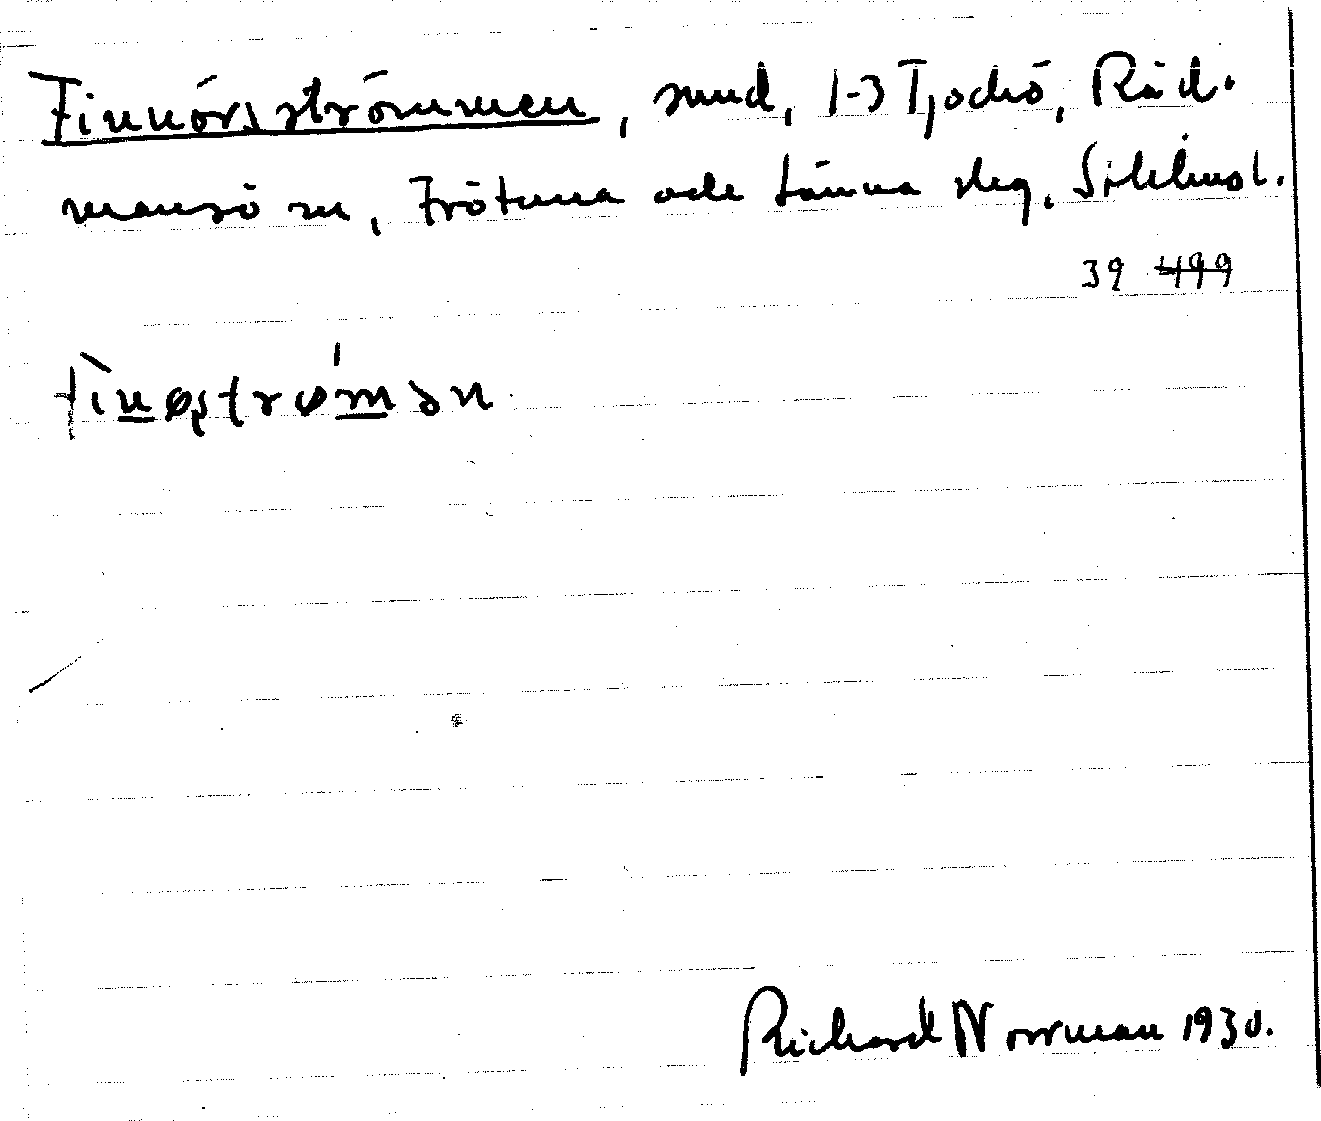 Finnörsströmmen, sund, 1-3 Tjockö, Råd-
mansö sn, Frötuna och Länna skg, Sthlms l.
39 499
finøʂtrømən
Richard Norrman 1930.